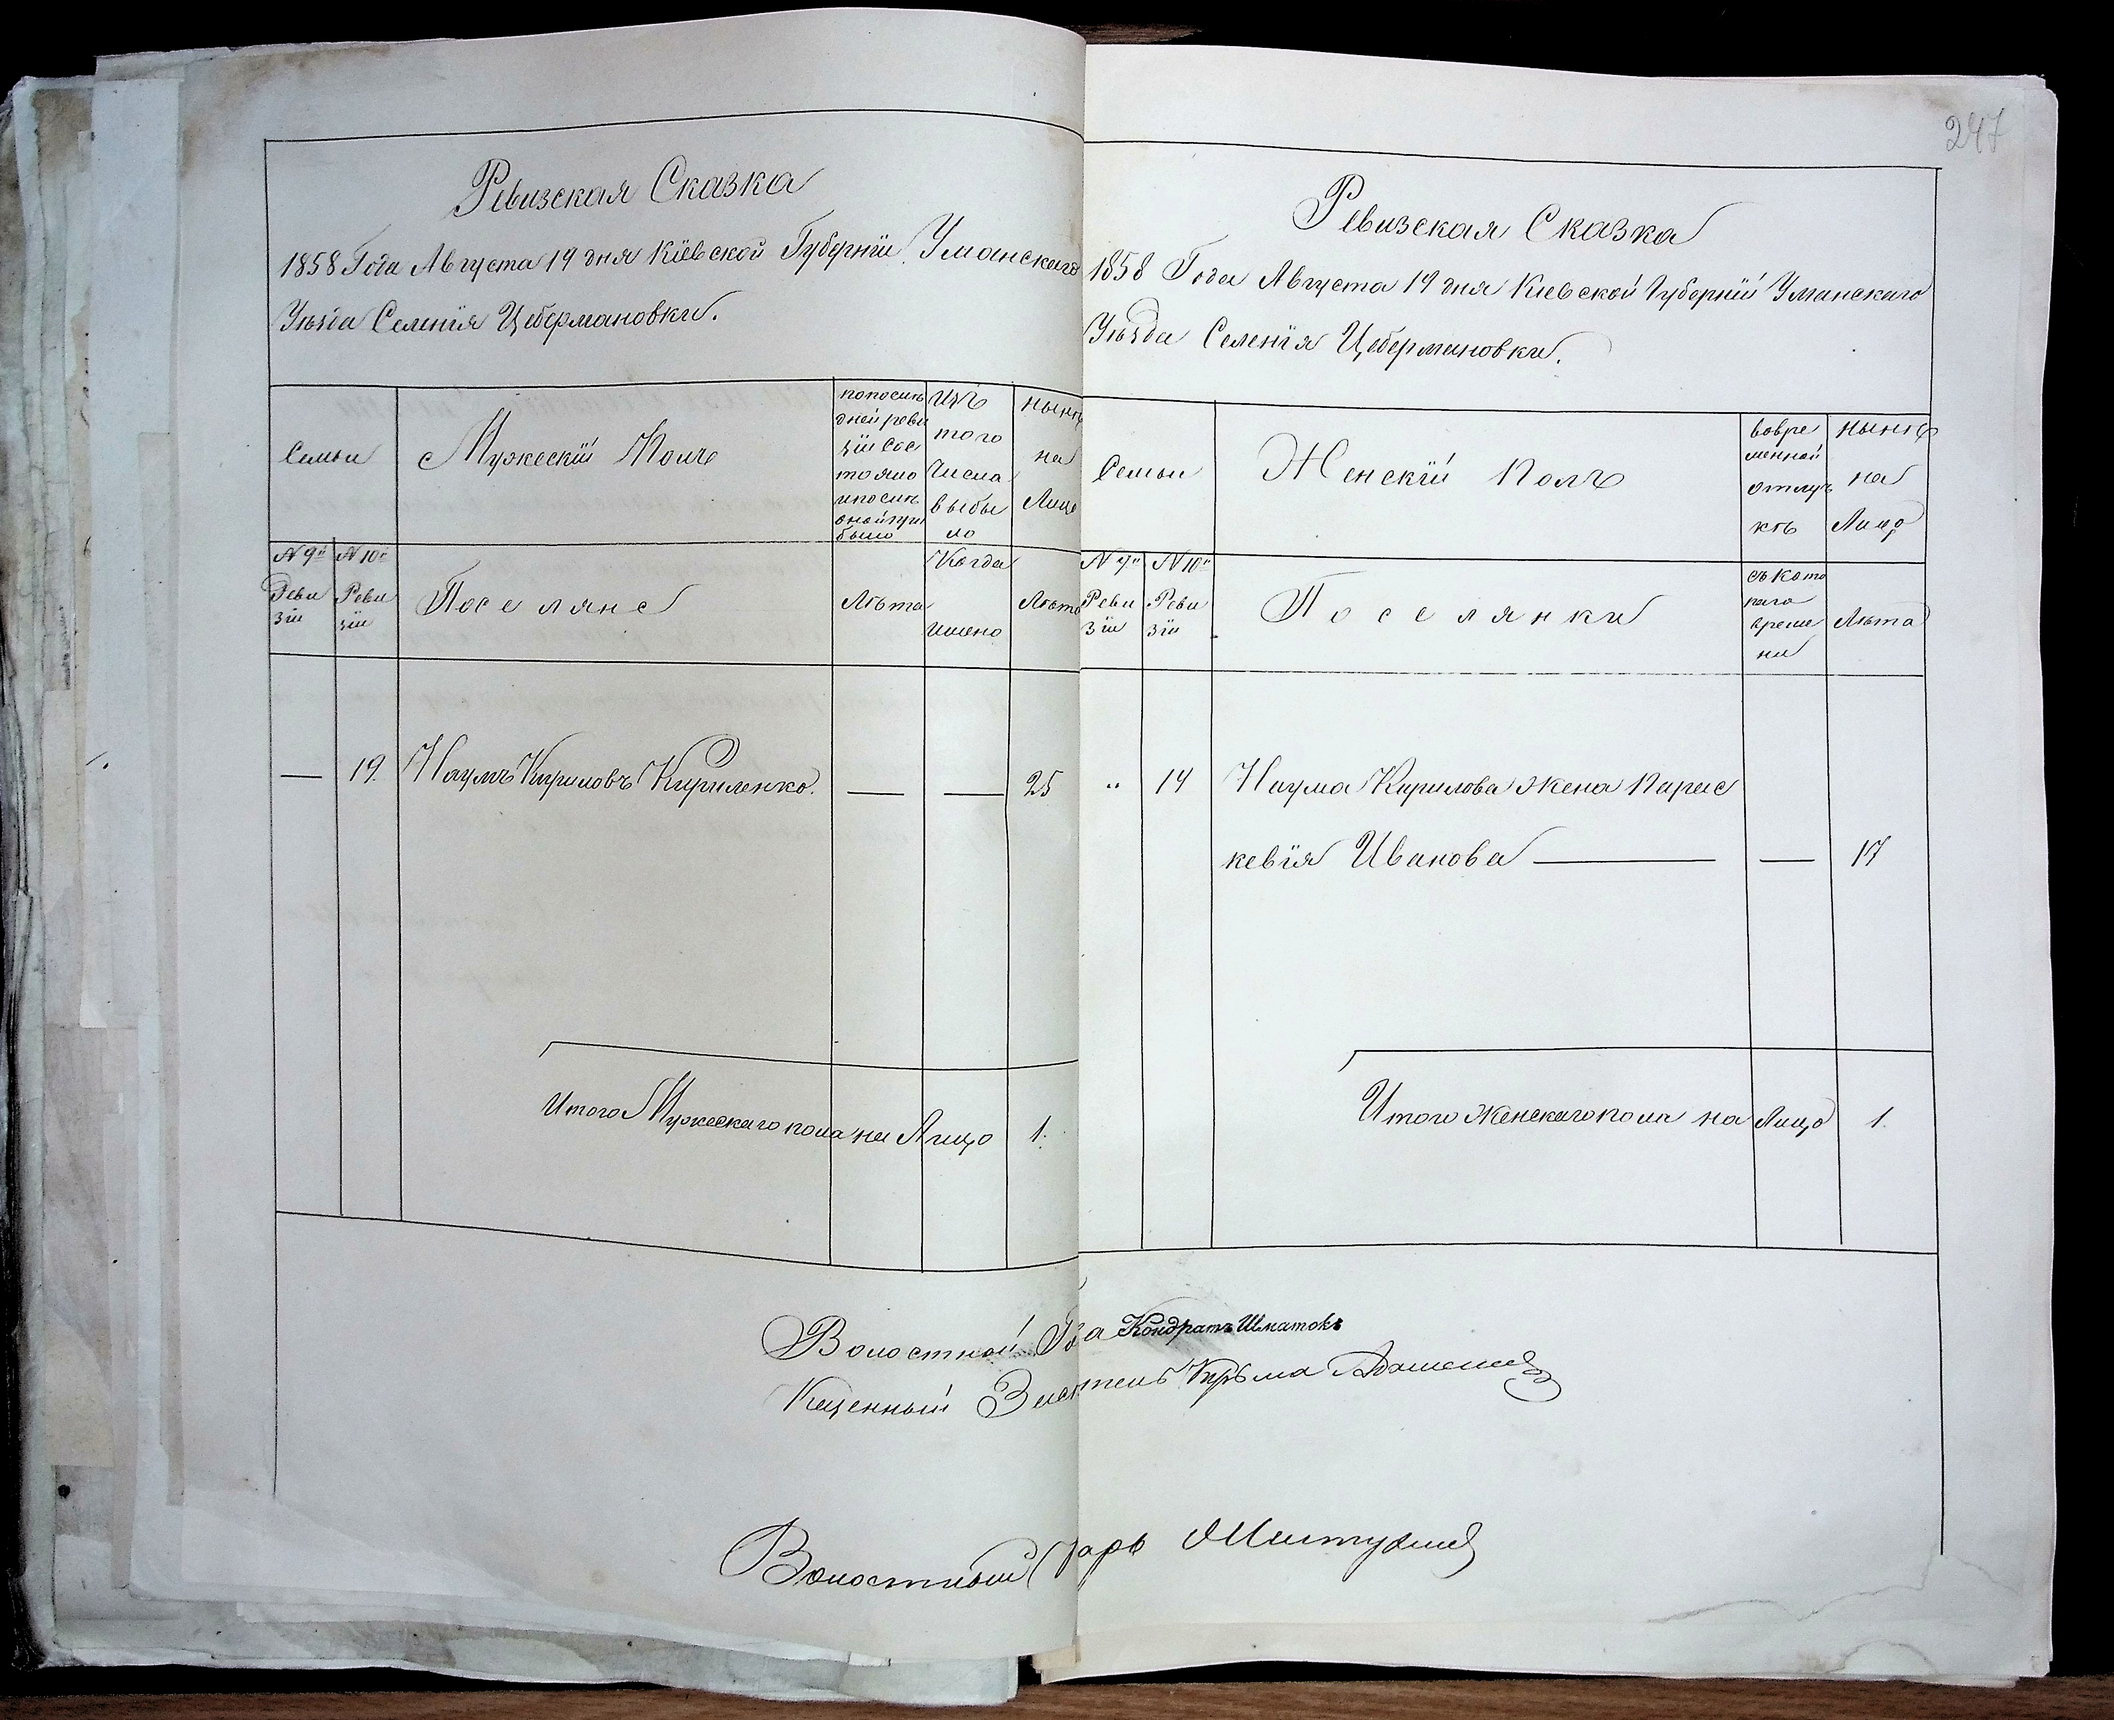 247
Ревизская Сказка
1858 Года Августа 19 дня Кіевской Губерніи Уманскаго
Уѣзда Селенія Цебермановки.
Семьи
Мужескій Полъ
попослѣ
дней реви
зіи сос
тояло
ипослѣ
оной при
было
Изъ
того
Числа
выбы
ло
нынѣ
на
Лицо
№ 9й
Реви
зіи
№ 10й
Реви
зіи
Поселяне
Лѣта
Когда
имено
Лѣта
— 19. Наумъ Кириловъ Кириленко. — — 25
Итого Мужескаго пола на Лицо 1.
Ревизская Сказка
1858 Года Августа 19 дня Кіевской Губерніи Уманскаго
Уѣзда Селенія Цебермановки.
Семьи
Женскій Полъ
вовре
менной
отлуч
кѣ
нынѣ
на
Лицо
№ 9й
Реви
зіи
№ 10й
Реви
зіи
Поселянки
съ кото
раго
време
ни
Лѣта
„ 19 Наума Кирилова жена Парас
кевія Иванова — — 17
Итого женскаго пола на Лицо 1.
Волостной Го а Кондратъ Шматокъ
Волостный арь